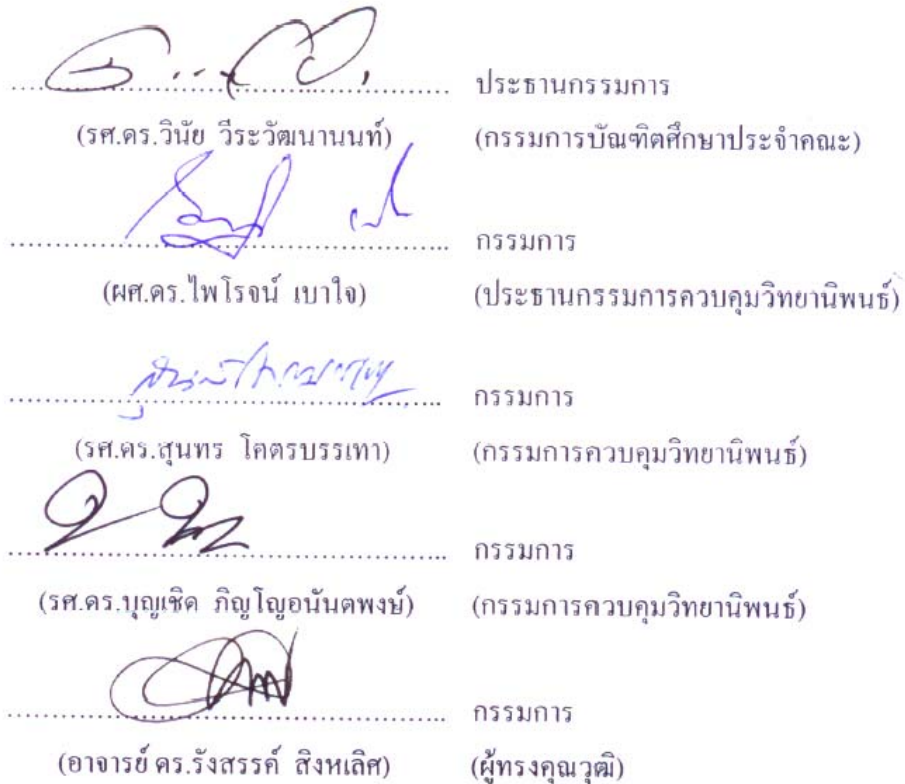 ........................................ ประธานกรรมการ
(รศ.ดร.วินัย วีระวัฒนานนท์) (กรรมการบัณฑิตศึกษาประจำคณะ)
........................................ กรรมการ
(ผศ.ดร.ไพโรจน์ เบาใจ) (ประธานกรรมการควบคุมวิทยานิพนธ์)
........................................ กรรมการ
(รศ.ดร.สุนทร โคตรบรรเทา) (กรรมการควบคุมวิทยานิพนธ์)
........................................ กรรมการ
(รศ.ดร.บุญเชิด ภิญโญอนันตพงษ์) (กรรมการควบคุมวิทยานิพนธ์)
........................................ กรรมการ
(อาจารย์ ดร.รังสรรค์ สิงหเลิศ) (ผู้ทรงคุณวุฒิ)